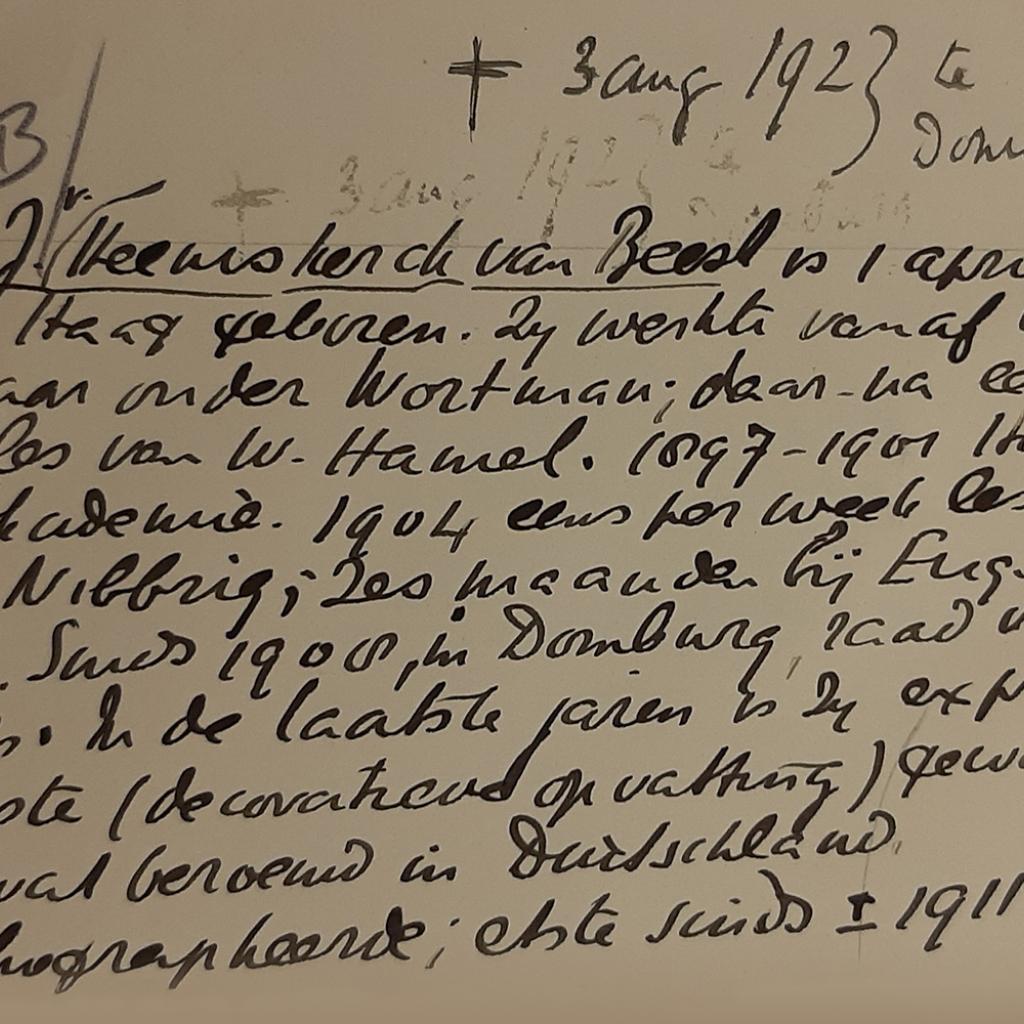 † 3 aug 1923 } te
B Dom
† 3 aug 192
J. v. Heemskerck van Beest is 1 apri
Haag geboren. Zy werkte vanaf
aar onder Wortman; daar-na ee
les van W. Hamel. 1897-1901 Ha
kademie. 1904 eens per week les
Nibbrig; zes maanden bij Eug.
. Sinds 1908, in Domburg, raad
. In de laatste jaren is zy exp
ste (decoratieve opvatting) gewo
val beroemd in Duitschland.
hographeerde; etste sinds ± 1911